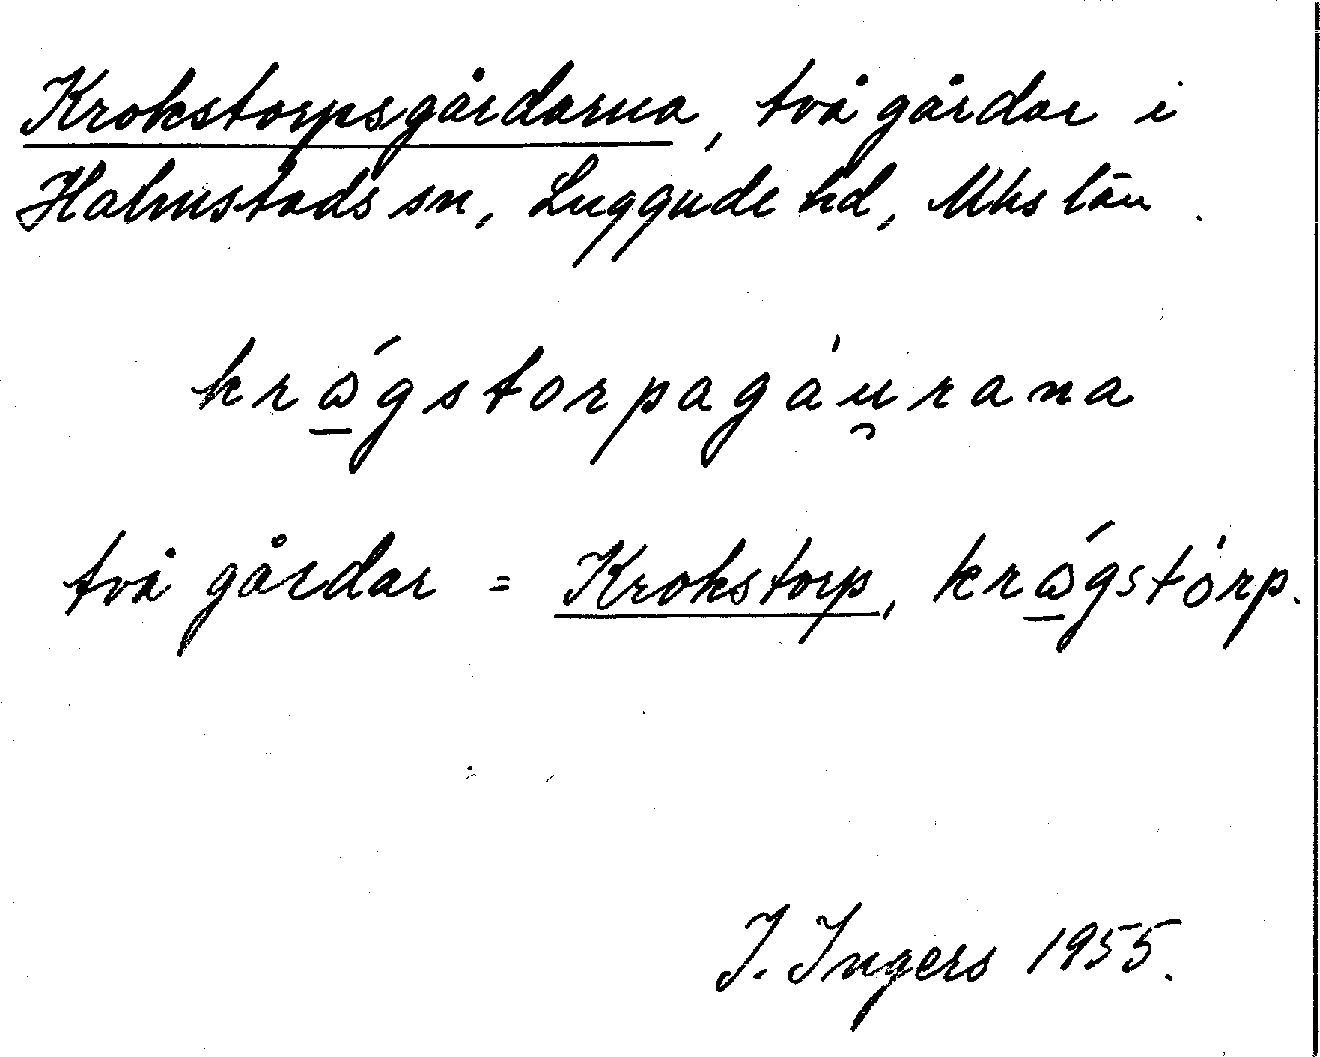 Krokstorpsgårdarna, två gårdar i
Halmstads sn, Luggude hd, Mhs län.
krώ̲gstorpagáu̯rana
två gårdar = Krokstorp, krώ̲gstòrp.
I. Ingers 1955.